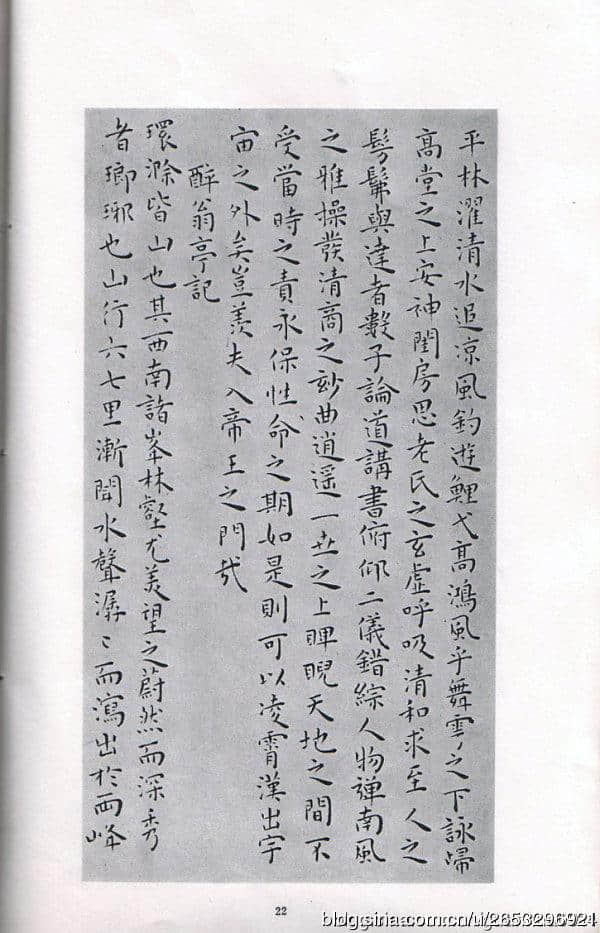 平林濯清水追凉風釣遊鯉弋高鴻風乎舞雩之下詠歸
高堂之上安神閨房思老氏之玄虛呼吸清和求至人之
髣髴與達者數子論道講書俯仰二儀錯綜人物彈南風
之雅操發清商之玅曲逍遥一世之上睥睨天地之間不
受當時之責永保性命之期如是則可以凌霄漢出宇
宙之外矣豈羨夫入帝王之門哉
醉翁亭記
環滁皆山也其西南諸峯林壑尤美望之蔚然而深秀
者瑯琊也山行六七里漸聞水聲潺〻而瀉出於兩峰
22
blog.sina.com.cn/u/2653296921